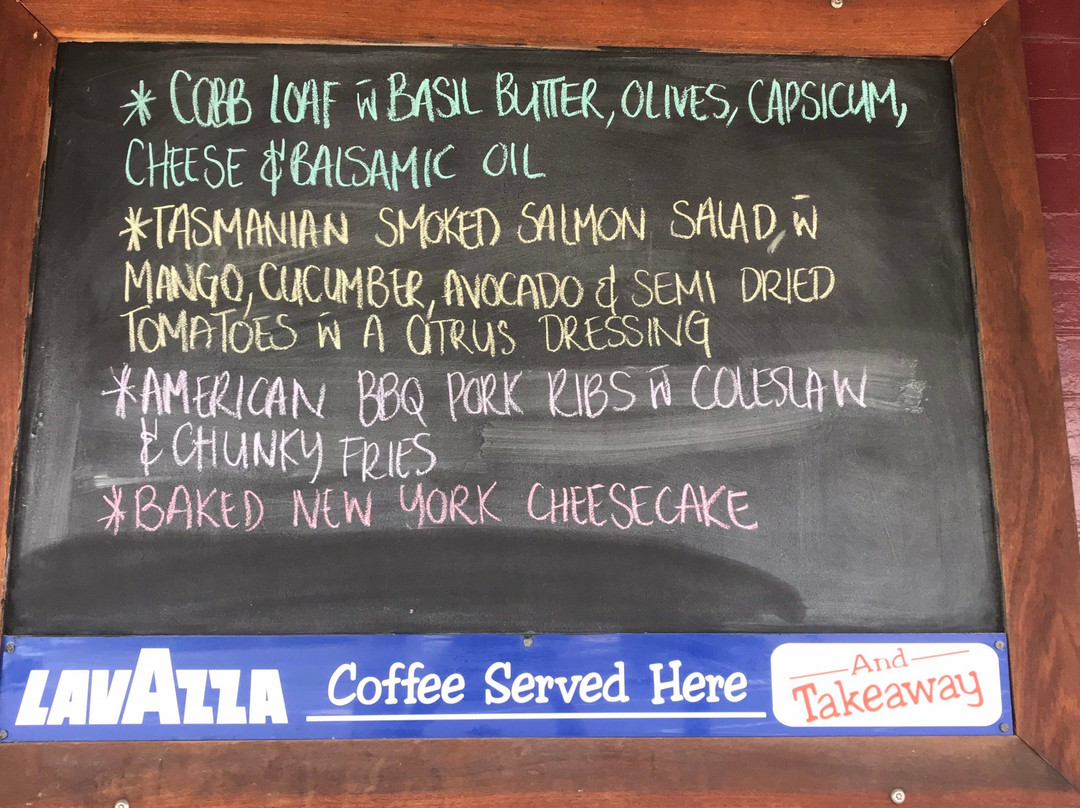 * COBB LOAF w̄ BASIL BUTTER, OLIVES, CAPSICUM,
CHEESE & BALSAMIC OIL
* TASMANIAN SMOKED SALMON SALAD, w̄
MANGO, CUCUMBER, AVOCADO & SEMI DRIED
TOMATOES w̄ A CITRUS DRESSING
* AMERICAN BBQ PORK RIBS w̄ COLESLAW
& CHUNKY FRIES
* BAKED NEW YORK CHEESECAKE
LAVAZZA Coffee Served Here
And
Takeaway